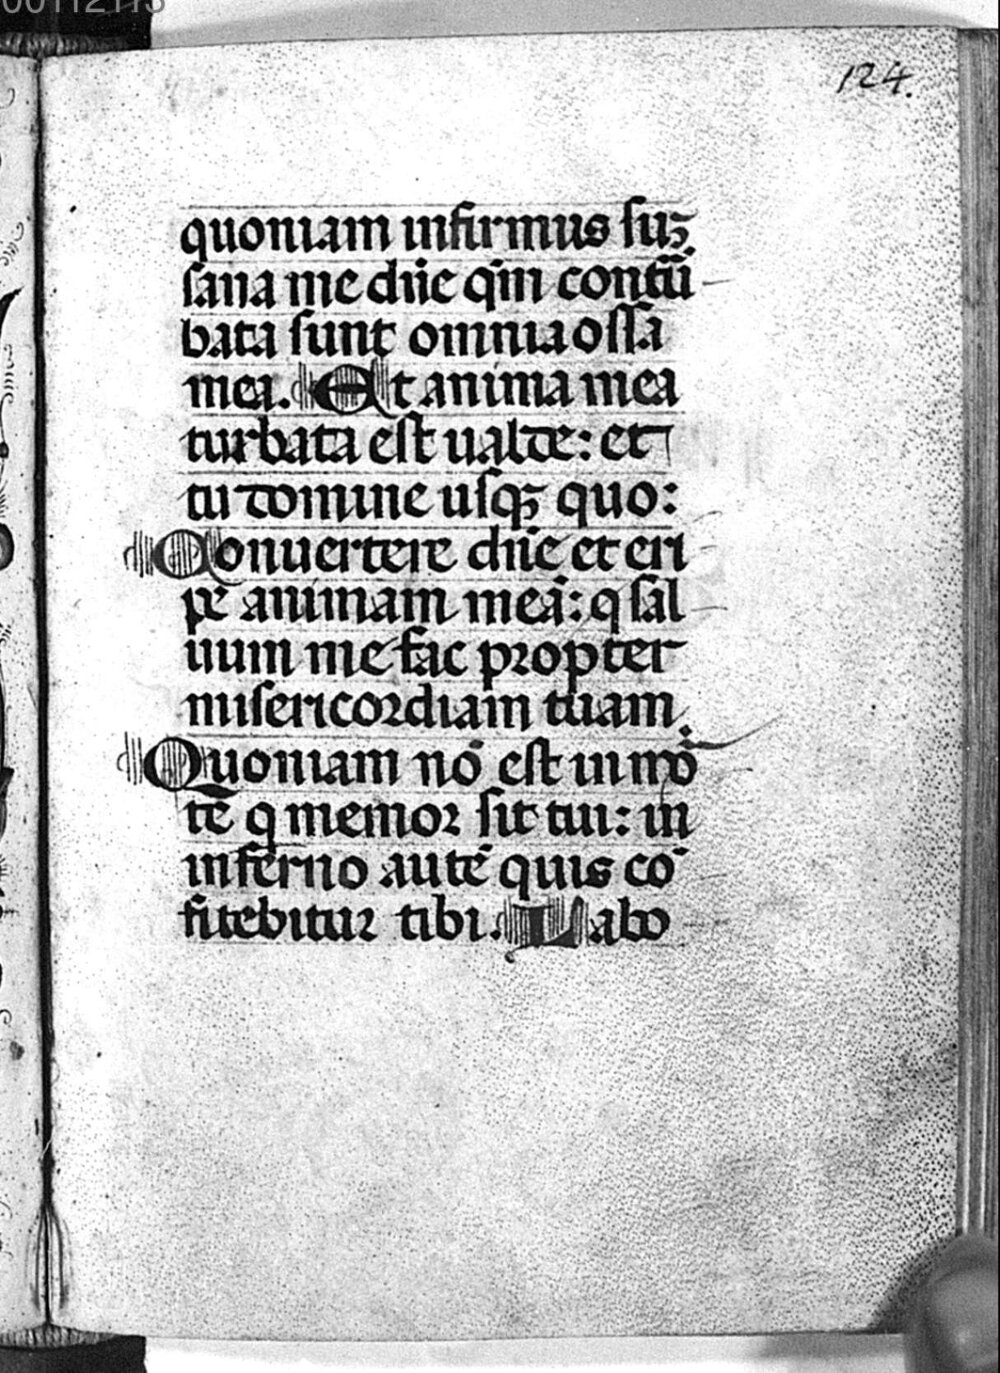 00112113
124.
quoniam infirmus suꝫ
sana me dñe qm̄ contũ
bata sunt omnia ossa
mea. Et anima mea
turbata est ualde: et
tu domine usqꝫ quo:
Conuertere dñe et eri
pe animam meā: q̄ sal
uum me fac propter
misericordiam tuam.
Quoniam nō est in mo
tē q̄ memor sit tui: in
inferno autē quis cō
fitebitur tibi. Labo